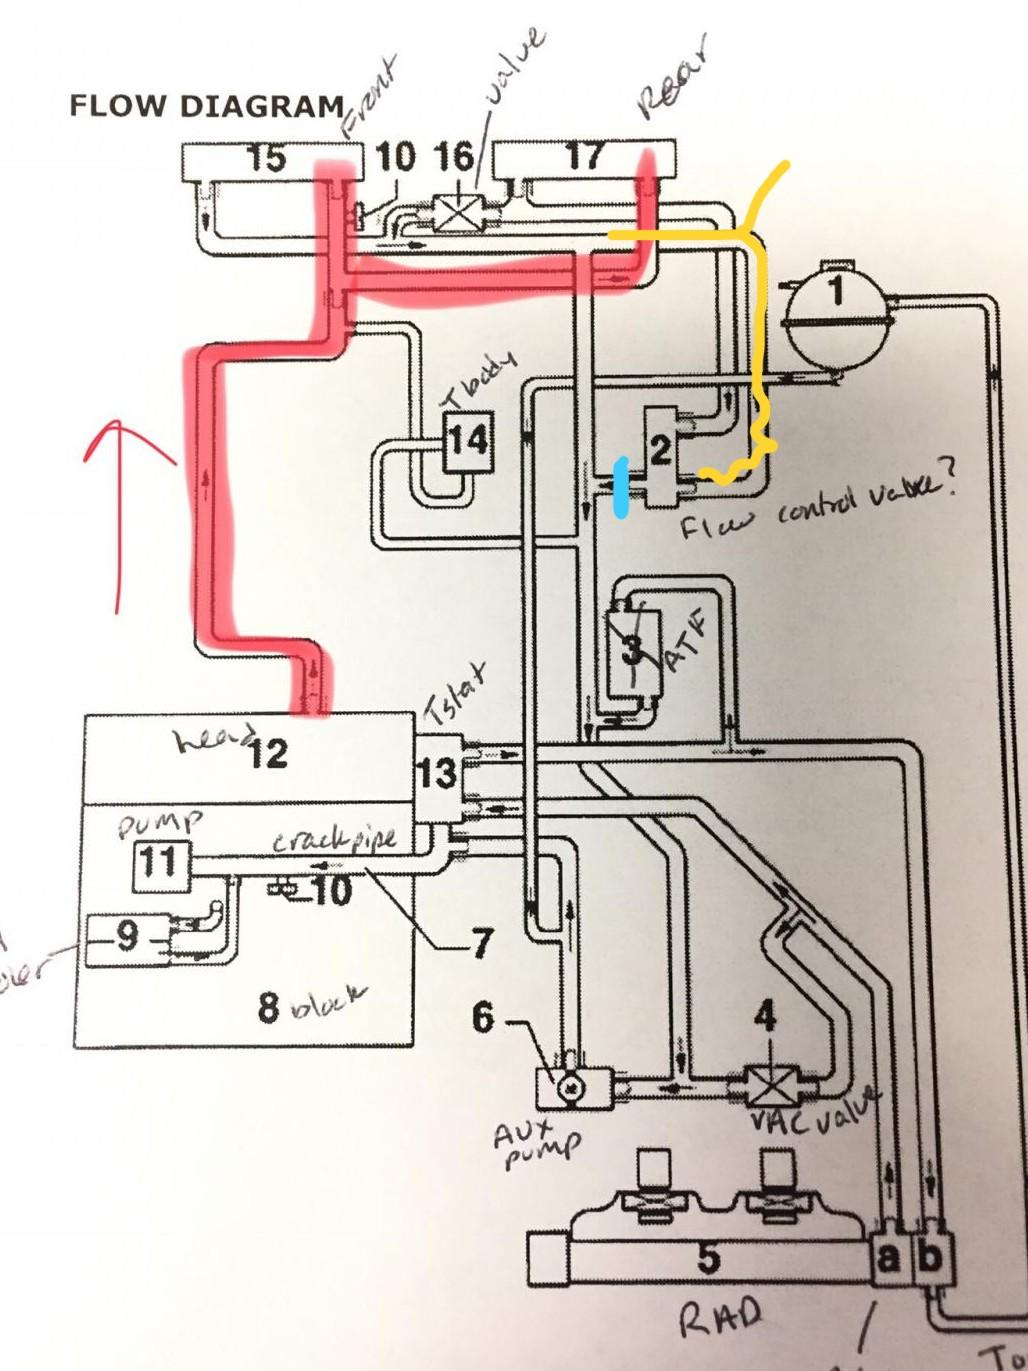 FLOW DIAGRAM
Front
valve
Rear
15
10
16
17
1
Tbody
14
2
Flow control valve?
3
ATF
Tstat
head
12
13
pump
crackpipe
11
10
9
7
8
block
6
4
Aux
pump
VAC valve
5
a
b
RAD